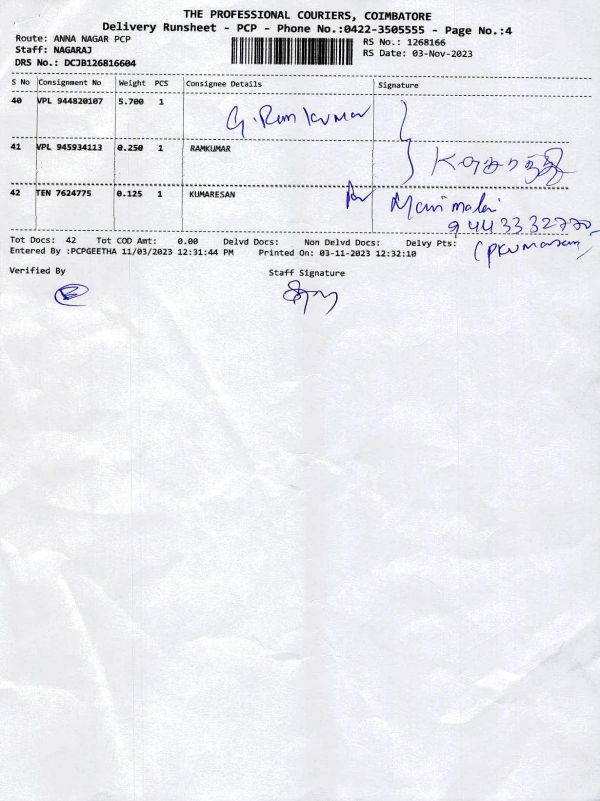 THE PROFESSIONAL COURIERS, COIMBATORE
Delivery Runsheet - PCP - Phone No.:0422-3505555 - Page No.:4
Route: ANNA NAGAR PCP RS No.: 1268166
Staff: NAGARAJ RS Date: 03-Nov-2023
DRS No.: DCJB126816604
S No Consignment No Weight PCS Consignee Details Signature
40 VPL 944820107 5.700 1 G. Ramkumar
41 VPL 945934113 0.250 1 RAMKUMAR
42 TEN 7624775 0.125 1 KUMARESAN Manimalai
9443332770
Tot Docs: 42 Tot COD Amt: 0.00 Delvd Docs: Non Delvd Docs: Delvy Pts: (PKumaresan)
Entered By :PCPGEETHA 11/03/2023 12:31:44 PM Printed On: 03-11-2023 12:32:10
Verified By Staff Signature